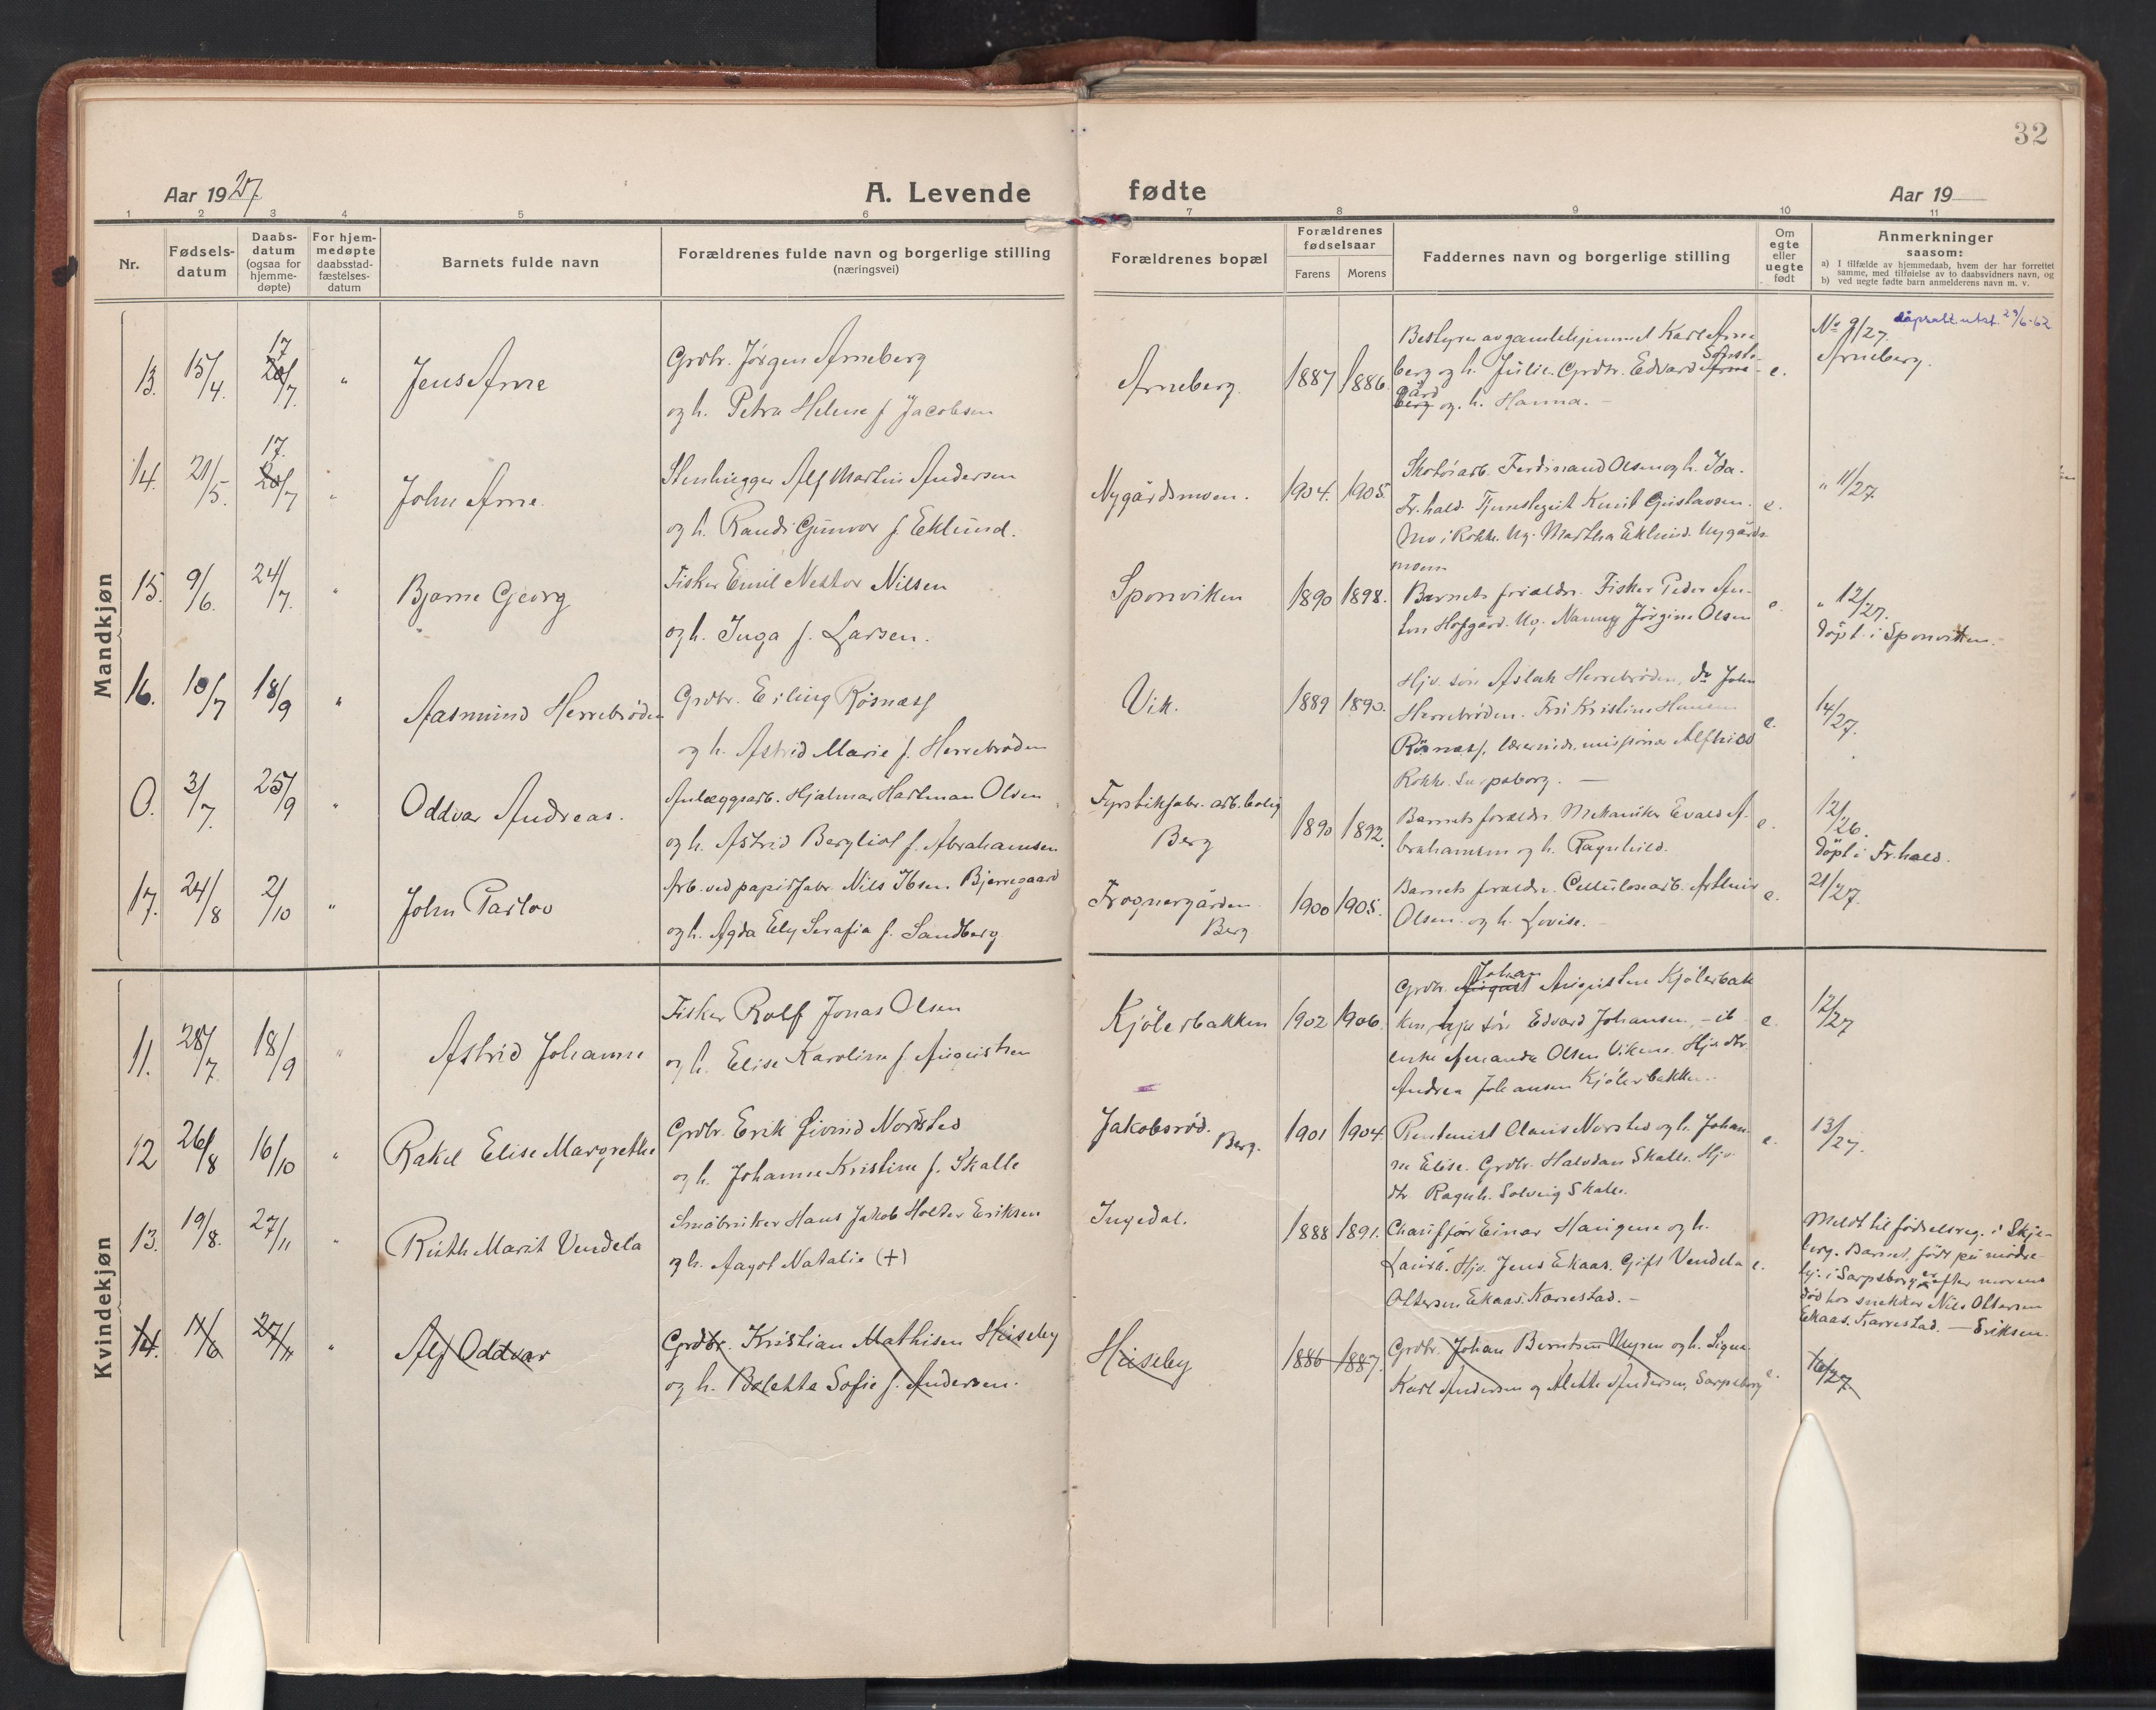 32
Aar 1927.
A. Levende fødte
Aar 19
1 2 3 4 5 6 7 8 9 10 11
Nr.
Fødsels-
datum
Daabs-
datum
(ogsaa for
hjemme-
døpte)
For hjem-
medøpte
daabsstad-
fæstelses-
datum
Barnets fulde navn
Forældrenes fulde navn og borgerlige stilling
(næringsvei)
Forældrenes bopæl
Forældrenes
fødselsaar
Farens Morens
Faddernes navn og borgerlige stilling
Om
egte
eller
uegte
født
Anmerkninger
saasom:
a) I tilfælde av hjemmedaab, hvem der har forrettet
samme, med tilføielse av to daabsvidners navn, og
b) ved uegte fødte barn anmelderens navn m. v.
Mandkjøn
13. 15/4. 17 20/7. " Jens Arne
Grdbr. Jörgen Arneberg
og h. Petra Helene f. Jacobsen
Arneberg. 1887 1886.
Bestyrer av gamlehjemmet Karl Arne-
berg og h. Julie. Grdbr. Edvard Arne-
berg og h. Hanna. –
e.
No 9/27. dåpsatt utst. 29/6-62
Arneberg.
14. 21/5. 17. 20/7 " John Arne.
Stenhugger Alf Martin Andersen
og h. Randi Gunvor f. Eklund.
Nygårdsmoen. 1904. 1905.
Skotöiarb. Ferdinand Olsen og h. Ida.
Fr.hald. Tjenestegut Knut Gustavsen.
Mo i Rokke. Ug. Martha Eklund. Nygårds-
moen
e.
" 11/27.
15. 9/6. 24/7. " Bjarne Georg
Fisker Emil Nestor Nilsen
og h. Inga f. Larsen.
Sponviken 1890 1898.
Barnets forældr. Fisker Peder An-
ton Hofgård. Ug. Nanny Jörgine Olsen
e.
" 12/27.
Döpt i Sponviken.
16. 10/7 18/9 " Aasmund Herrebröden
Grdbr. Erling Rösnæs
og h. Astrid Marie f. Herrebröden
Vik. 1889 1890.
Hjv. sön Aslak Herrebröden, do John
Herrebröden. Frk Kristine Hansen
Rösnæs, lærerinde, misjonær Alfhild
Rokke Sarpsborg. —
e.
14/27.
0. 3/7. 25/9 " Oddvar Andreas.
Anlægsarb. Hjalmar Hartman Olsen
og h. Astrid Bergliot f. Abrahamsen
Fyrstikfabr. arb.bolig
Berg
1890 1892.
Barnets foræld. Mekaniker Evald A-
brahamsen og h. Ragnhild.
e.
12/26.
Döpt i Fr.hald.
17. 24/8 2/10 " John Parlov
Arb. ved papirfabr. Nils Ibsen Bjerregaard
og h. Agda Ely Serafia f. Sandberg
Frognergården
Berg
1900 1905.
Barnets foræld. Cellulosearb. Arthur
Olsen og h. Lovise. –
e.
21/27.
Kvindekjøn
11. 28/7. 18/9 " Astrid Johanne
Fisker Rolf Jonas Olsen
og h. Elise Karoline f. Augustsen
Kjölerbakken 1902 1906.
Grdbr. August Johan Augustsen Kjölerbak-
ken, hjv sön Edvard Johansen,
enke Amanda Olsen Vikene. Hjv. dtr.
Andrea Johansen Kjölerbakken.
e.
12/27
12 26/8 16/10 " Rakel Elise Margrethe
Grdbr. Erik Eivind Norsted
og h. Johanne Kristine f. Skalle
Jakobsröd.
Berg.
1901 1904.
Rentenist Claus Norsted og h. Johan-
ne Elise. Grdbr. Halvdan Skalle. Hjv.
dtr. Ragnh. Solveig Skalle.
e.
13/27.
13. 19/8. 27/11 " Ruth Marit Vendela
Småbruker Hans Jakob Holter Eriksen
og h. Aagot Natalie (+)
Ingedal. 1888 1891.
Chaufför Einar Haugene og h.
Laura. Hjv. Jens Ekaas. Gift Vendela
Ottersen Ekaas. Karrestad. –
e.
Meldt til födselsreg. i Skje-
berg. Barnet, födt på mödre-
hj. i Sarpsborg er efter morens
död hos snekker Nils Ottersen
Ekaas. Karrestad. — Eriksen.
14. 27/11 " Alf Oddvar
Grdbr. Kristian Mathisen Huseby
og h. Bolette Sofie f. Andersen.
Huseby 1886 1887.
Grdbr. Johan Berntsen Myren og h. Signe.
Karl Andersen og Mette Andersen, Sarpsborg
e.
16/27.